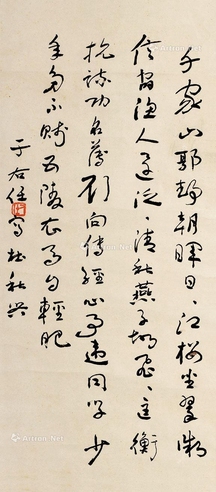 千家山郭靜朝暉日〻江樓坐翠微
信宿漁人還泛〻清秋燕子故飛〻匡衡
抗疏功名薄劉向傳經心事違同學少
年多不賤五陵衣馬自輕肥
于右任寫杜秋興
Artron.Net
Artron.Net